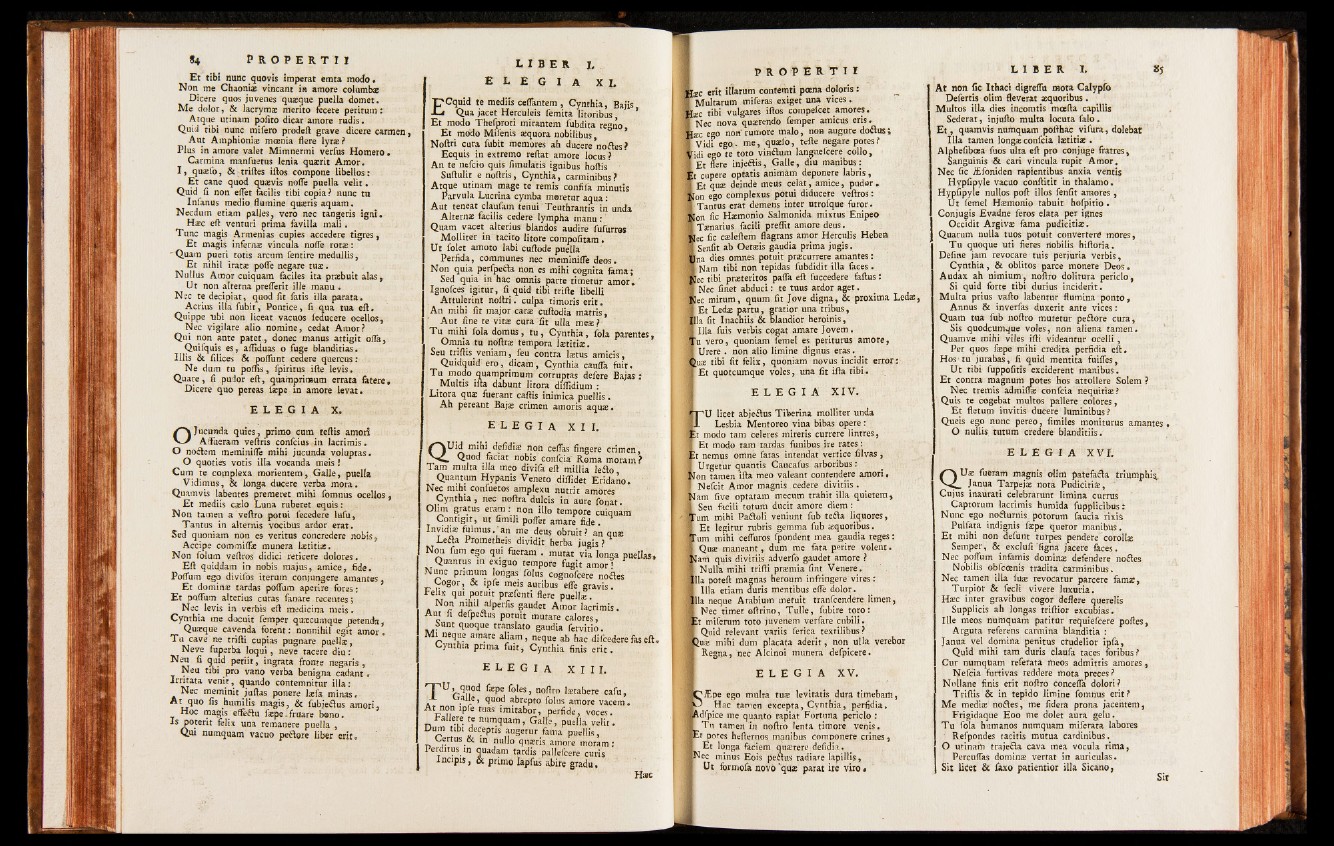 84 PROPERTII
Et tibi nunc quovis imperat emta modo.
Non me Chaoniæ vincant in amore columbæ
Dicere quos juvenes quæque puella domet.
Me dolor, & lacrymæ merito fecere peritum:
Atque utinam posito dicar amore rudis.
Quid tibi nunc misero prodest grave dicere carmen,
Aut Amphioniæ mœnia flere lyræ?
Plus in amore valet Mimnermi versus Homero.
Carmina mansuetus lenia quærit Amor.
I, quæso, & tristes istos compone libellos:
Et cane quod quævis nosse puella velit.
Quid si non esset facilis tibi copia? nunc tu
Insanus medio flumine quæris aquam.
Necdum etiam palles, vero nec tangeris igni.
Hæc est venturi prima favilla mali.
Tunc magis Armenias cupies accedere tigres,
Et magis infernæ vincula nosse rotæ:
Quam pueri totis arcum sentire medullis,
Et nihil iratæ posse negare tuæ.
Nullus Amor cuiquam faciles ita præbuit alas,
Ut non alterna presserit ille manu.
Nec te decipiat, quod sit satis illa parata.
Acrius illa subit, Pontice, si qua tua est.
Quippe ubi non liceat vacuos seducere ocellos,
Nec vigilare alio nomine, cedat Amor?
Qui non ante patet, donec manus attigit ossa,
Quisquis es, assiduas o fuge blanditias.
Illis & silices & possunt cedere quercus:
Ne dum tu possis, spiritus iste levis.
Quare, si pudor est, quamprimum errata fatere.
Dicere quo pereas sæpe in amore levat.
ELEGIA X.
O Jucunda quies, primo cum testis amori
Affueram vestris conscius in lacrimis.
O noctem meminisse mihi jucunda voluptas.
O quoties votis illa vocanda meis!
Cum te complexa morientem, Galle, puella
Vidimus, & longa ducere verba mora.
Quamvis labentes premeret mihi somnus ocellos,
Et mediis cælo Luna ruberet equis:
Non tamen a vestro potui secedere lusu,
Tantus in alternis vocibus ardor erat.
Sed quoniam non es veritus concredere nobis,
Accipe commissæ munera lætitiæ.
Non solum vestros didici reticere dolores.
Est quiddam in nobis majus, amice, fide.
Possum ego divisos iterum conjungere amantes,
Et dominæ tardas possum aperire fores:
Et possum alterius curas sanare recentes;
Nec levis in verbis est medicina meis.
Cynthia me docuit semper quæcumque petenda,
Quæque cavenda forent: nonnihil egit amor.
Tu cave ne tristi cupias pugnare puellæ,
Neve superba loqui, neve tacere diu:
Neu si quid periit, ingrata fronte negaris,
Neu tibi pro vano verba benigna cadant.
Irritata venit, quando contemnitur illa:
Nec meminit justas ponere læsa minas.
At quo sis humilis magis, & subjectus amori,
Hoc magis effectu sæpe fruare bono.
Is poterit felix una remanere puella,
Qui numquam vacuo pectore liber erit.
LIBER I.
ELEGIA XI.
ECquid te mediis cessantem, Cynthia, Bajis,
Qua jacet Herculeis semita litoribus,
Et modo Thesproti mirantem subdita regno,
Et modo Misenis æquora nobilibus,
Nostri cura subit memores ah ducere noctes?
Ecquis in extremo restat amore locus?
An te nescio quis simulatis ignibus hostis
Sustulit e nostris, Cynthia, carminibus?
Atque utinam mage te remis confisa minutis
Parvula Lucrina cymba moretur aqua:
Aut teneat clausam tenui Teuthrantis in unda
Alternæ facilis cedere lympha manu:
Quam vacet alterius blandos audire susurros
Molliter in tacito litore compositam.
Ut solet amoto labi custode puella
Perfida, communes nec meminisse deos.
Non quia perspecta non es mihi cognita fama;
Sed quia in hac omnis parte timetur amor.
Ignosces igitur, si quid tibi triste libelli
Attulerint nostri. culpa timoris erit.
An mihi sit major caræ custodia matris,
Aut sine te vitæ cura sit ulla meæ?
Tu mihi sola domus, tu, Cynthia, sola parentes,
Omnia tu nostræ tempora lætitiæ.
Seu tristis veniam, seu contra lætus amicis,
Quidquid ero, dicam, Cynthia caussa fuit.
Tu modo quamprimum corruptas desere Bajas;
Multis ista dabunt litora dissidium:
Litora quæ fuerant castis inimica puellis.
Ah pereant Bajæ crimen amoris aquæ.
ELEGIA XII.
QUid mihi desidiæ non cessas fingere crimen,
Quod faciat nobis conscia Roma moram?
Tam multa illa meo divisa est millia lecto,
Quantum Hypanis Veneto dissidet Eridano.
Nec mihi consuetos amplexu nutrit amores
Cynthia, nec nostra dulcis in aure sonat.
Olim gratus eram: non illo tempore cuiquam
Contigit, ut simili posset amare fide.
Invidiæ fuimus. an me deus obruit? an quæ
Lecta Prometheis dividit herba jugis?
Non sum ego qui fueram. mutat via longa puellas,
Quantus in exiguo tempore fugit amor!
Nunc primum longas solus cognoscere noctes
Cogor, & ipse meis auribus esse gravis.
Felix qui potuit præsenti flere puellæ.
Non nihil aspersis gaudet Amor lacrimis.
Aut si despectus potuit mutare calores,
Sunt quoque translato gaudia servitio.
Mi neque amare aliam, neque ab hac discedere fas est.
Cynthia prima fuit, Cynthia finis erit.
ELEGIA XIII.
TU, quod sæpe soles, nostro lætabere casu,
Galle, quod abrepto solus amore vacem.
At non ipse tuas imitabor, perfide, voces.
Fallere te numquam, Galle, puella velit.
Dum tibi deceptis augetur fama puellis,
Certus & in nullo quæris amore moram:
Perditus in quadam tardis pallescere curis
Incipis, & primo lapsus abire gradu.
Hæc
PROPERTII
Hæc erit illarum contemti pœna doloris:
Multarum miseras exiget una vices.
Hæc tibi vulgares istos compescet amores.
Nec nova quærendo semper amicus eris.
Hæc ego non rumore malo, non augure doctus;
Vidi ego. me, quæso, teste negare potes?
Vidi ego te toto vinctum languescere collo,
Et flere injectis, Galle, diu manibus:
Et cupere optatis animam deponere labris,
Et quæ deinde meus celat, amice, pudor.
Non ego complexus potui diducere vestros:
Tantus erat demens inter utrosque furor.
Non sic Hæmonio Salmonida mixtus Enipeo
Tænarius facili pressit amore deus.
Nec sic cælestem flagrans amor Herculis Heben
Sensit ab Oetæis gaudia prima jugis.
Una dies omnes potuit præcurrere amantes:
Nam tibi non tepidas subdidit illa faces.
Nec tibi præteritos passa est succedere fastus:
Nec sinet abduci: te tuus ardor aget.
Nec mirum, quum sit Jove digna, & proxima Ledæ,
Et Ledæ partu, gratior una tribus,
Illa sit Inachiis & blandior heroinis,
Illa suis verbis cogat amare Jovem.
Tu vero, quoniam semel es periturus amore,
Urere. non alio limine dignus eras.
Quæ tibi sit felix, quoniam novus incidit error:
Et quotcumque voles, una sit ista tibi.
ELEGIA XIV.
TU licet abjectus Tiberina molliter unda
Lesbia Mentoreo vina bibas opere:
Et modo tam celeres mireris currere lintres,
Et modo tam tardas funibus ire rates:
Et nemus omne satas intendat vertice silvas,
Urgetur quantis Caucasus arboribus:
Non tamen ista meo valeant contendere amori.
Nescit Amor magnis cedere divitiis.
Nam sive optatam mecum trahit illa quietem,
Seu facili totum ducit amore diem:
Tum mihi Pactoli veniunt sub tecta liquores,
Et legitur rubris gemma sub æquoribus.
Tum mihi cessuros spondent mea gaudia reges:
Quæ maneant, dum me fata perire volent.
Nam quis divitiis adverso gaudet amore?
Nulla mihi tristi præmia sint Venere.
Illa potest magnas heroum infringere vires:
Illa etiam duris mentibus esse dolor.
Illa neque Arabium metuit transcendere limen,
Nec timet ostrino, Tulle, subire toro:
Et miserum toto juvenem versare cubili.
Quid relevant variis serica textilibus?
Quæ mihi dum placata aderit, non ulla verebor
Regna, nec Alcinoi munera despicere.
ELEGIA XV.
SÆpe ego multa tuæ levitatis dura timebam,
Hac tamen excepta, Cynthia, perfidia.
Adspice me quanto rapiat Fortuna periclo:
Tu tamen in nostro lenta timore venis.
Et potes hesternos manibus componere crines,
Et longa faciem quærere desidia.
Nec minus Eois pectus radiare lapillis,
Ut formosa novo quæ parat ire viro.
LIBER I. 85
At non sic Ithaci digressu mota Calypso
Desertis olim fleverat æquoribus.
Multos illa dies incomtis mœsta capillis
Sederat, injusto multa locuta salo.
Et, quamvis numquam posthac visura, dolebat
Illa tamen longæ conscia lætitiæ.
Alphesibœa suos ulta est pro conjuge fratres,
Sanguinis & cari vincula rupit Amor.
Nec sic Æsoniden rapientibus anxia ventis
Hypsipyle vacuo constitit in thalamo.
Hypsipyle nullos post illos sensit amores,
Ut semel Hæmonio tabuit hospitio.
Conjugis Evadne feros elata per ignes
Occidit Argivæ fama pudicitiæ.
Quarum nulla tuos potuit convertere mores,
Tu quoque uti fieres nobilis historia.
Desine jam revocare tuis perjuria verbis,
Cynthia, & oblitos parce monere Deos.
Audax ah nimium, nostro dolitura periclo,
Si quid forte tibi durius inciderit.
Multa prius vasto labentur flumina ponto,
Annus & inversas duxerit ante vices:
Quam tua sub nostro mutetur pectore cura,
Sis quodcumque voles, non aliena tamen.
Quamve mihi viles isti videantur ocelli,
Per quos sæpe mihi credita perfidia est.
Hos tu jurabas, si quid mentita fuisses,
Ut tibi suppositis exciderent manibus.
Et contra magnum potes hos attollere Solem?
Nec tremis admissæ conscia nequitiæ?
Quis te cogebat multos pallere colores,
Et fletum invitis ducere luminibus?
Queis ego nunc pereo, similes moniturus amantes,
O nullis tutum credere blanditiis.
ELEGIA XVI.
QUæ fueram magnis olim patefacta triumphis,
Janua Tarpejæ nota Pudicitiæ,
Cujus inaurati celebrarunt limina currus
Captorum lacrimis humida supplicibus:
Nunc ego nocturnis potorum saucia rixis
Pulsata indignis sæpe queror manibus.
Et mihi non desunt turpes pendere corollæ
Semper, & exclusi signa jacere faces.
Nec possum infamis dominæ defendere noctes
Nobilis obscœnis tradita carminibus.
Nec tamen illa suæ revocatur parcere famæ,
Turpior & secli vivere luxuria.
Hæc inter gravibus cogor deflere querelis
Supplicis ah longas tristior excubias.
Ille meos numquam patitur requiescere postes,
Arguta referens carmina blanditia:
Janua vel domina penitus crudelior ipsa,
Quid mihi tam duris clausa taces foribus?
Cur numquam reserata meos admittis amores,
Nescia furtivas reddere mota preces?
Nullane finis erit nostro concessa dolori?
Tristis & in tepido limine somnus erit?
Me mediæ noctes, me sidera prona jacentem,
Frigidaque Eoo me dolet aura gelu.
Tu sola humanos numquam miserata labores
Respondes tacitis mutua cardinibus.
O utinam trajecta cava mea vocula rima,
Percussas dominæ vertat in auriculas.
Sit licet & saxo patientior illa Sicano,
Sit